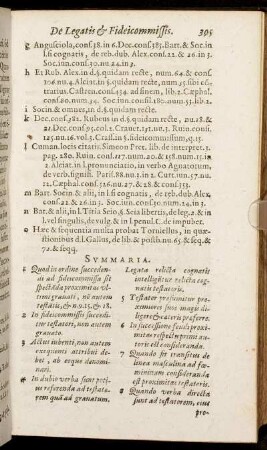 De Legatis & Fideicommissis. 305
g Anguſciola, conſ.18. in 6. Dec. conſ.585. Bart. & Soc. in
l. ſi cognatis, de reb. dub. Alex. conſ.22. & 26. in 3.
Soc. iun. conſ.30. nu.24. in 2.
h Et Rub. Alex. in d.§. quidam recte, num.64. & conſ.
106. nu.24. in 1. Rip. in d.§. quidam,
tarius. Caſtren. conſ.434. ad finem, lib.2. Cæphal.
conſ.20. nu.30. Soc. iun. conſ.180. nu.11. lib.2.
i Socin. & omnes, in d.§. quidam recte.
k Dec. conſ.782. Rubeus in d.§. quidam recte, nu.18. &
21. Dec. conſ.95. col.2. Crauet. 131. nu.3. Ruin. conſ.
125. nu.16. vol.3. Craſſ. in §. fideicommiſſum, q.15.
l Cuman. locis citatis. Simeon Præt. lib. de interpret.
pag.280. Ruin. conſ.157. num.20. & 158. num.15. in
2. Alciat. in l. pronunciatio, in verbo Agnatorum,
de verb. ſignifi. Pariſ.88. nu.31. in 2. Curt. iun.57. nu.
22. Cæphal. conſ.326. nu.27. & 28. & conſ.353.
m Bart. Socin. & alii, in l. ſi cognatis, de reb. dub. Alex.
conſ.22. & 26. in 3.
n Bar. & alii, in l. Titia Seio, §. Seia libertis, de leg.2. & in
l. vel ſingulis, de vulg. & in l. penul. C. de impuber.
o Hæc & ſequentia multa probat Torniellus, in quæ-
ſtionibus d. l. Gallus, de lib. & poſth. nu.65. & ſeq. &
72. & ſeqq.
SVMMARIA.
1 Quod in ordine ſucceden-
di ad fideicommiſſa ſit
ſpectāda proximitas vl-
timi grauati, nō autem
teſtatis, & n.9.15. & 18.
2 In fideicommiſſis ſuccedi-
tur teſtatori, non autem
grauato.
3 Actus iubenti, non autem
exequenti attribui de-
bet, ab eoque denomi-
nari.
4 In dubio verba ſunt potius
referenda ad teſtato-
rem quàm ad grauatum.
Legata relicta cognatis
intelligitur relicta cog-
natis teſtatoris.
5 Teſtator præſumitur pro-
ximiores ſuos magis dili-
gere & cæteris præferre.
6 In ſucceſſione feudi proxi-
mitas reſpectu primi au-
ctoris eſt conſideranda.
7 Quando fit tranſitus de
linea maſculina ad fœ-
mininam conſideranda
eſt proximitas teſtatoris.
8 Quando verba directa
ſunt ad teſtatorem, eius
pro-